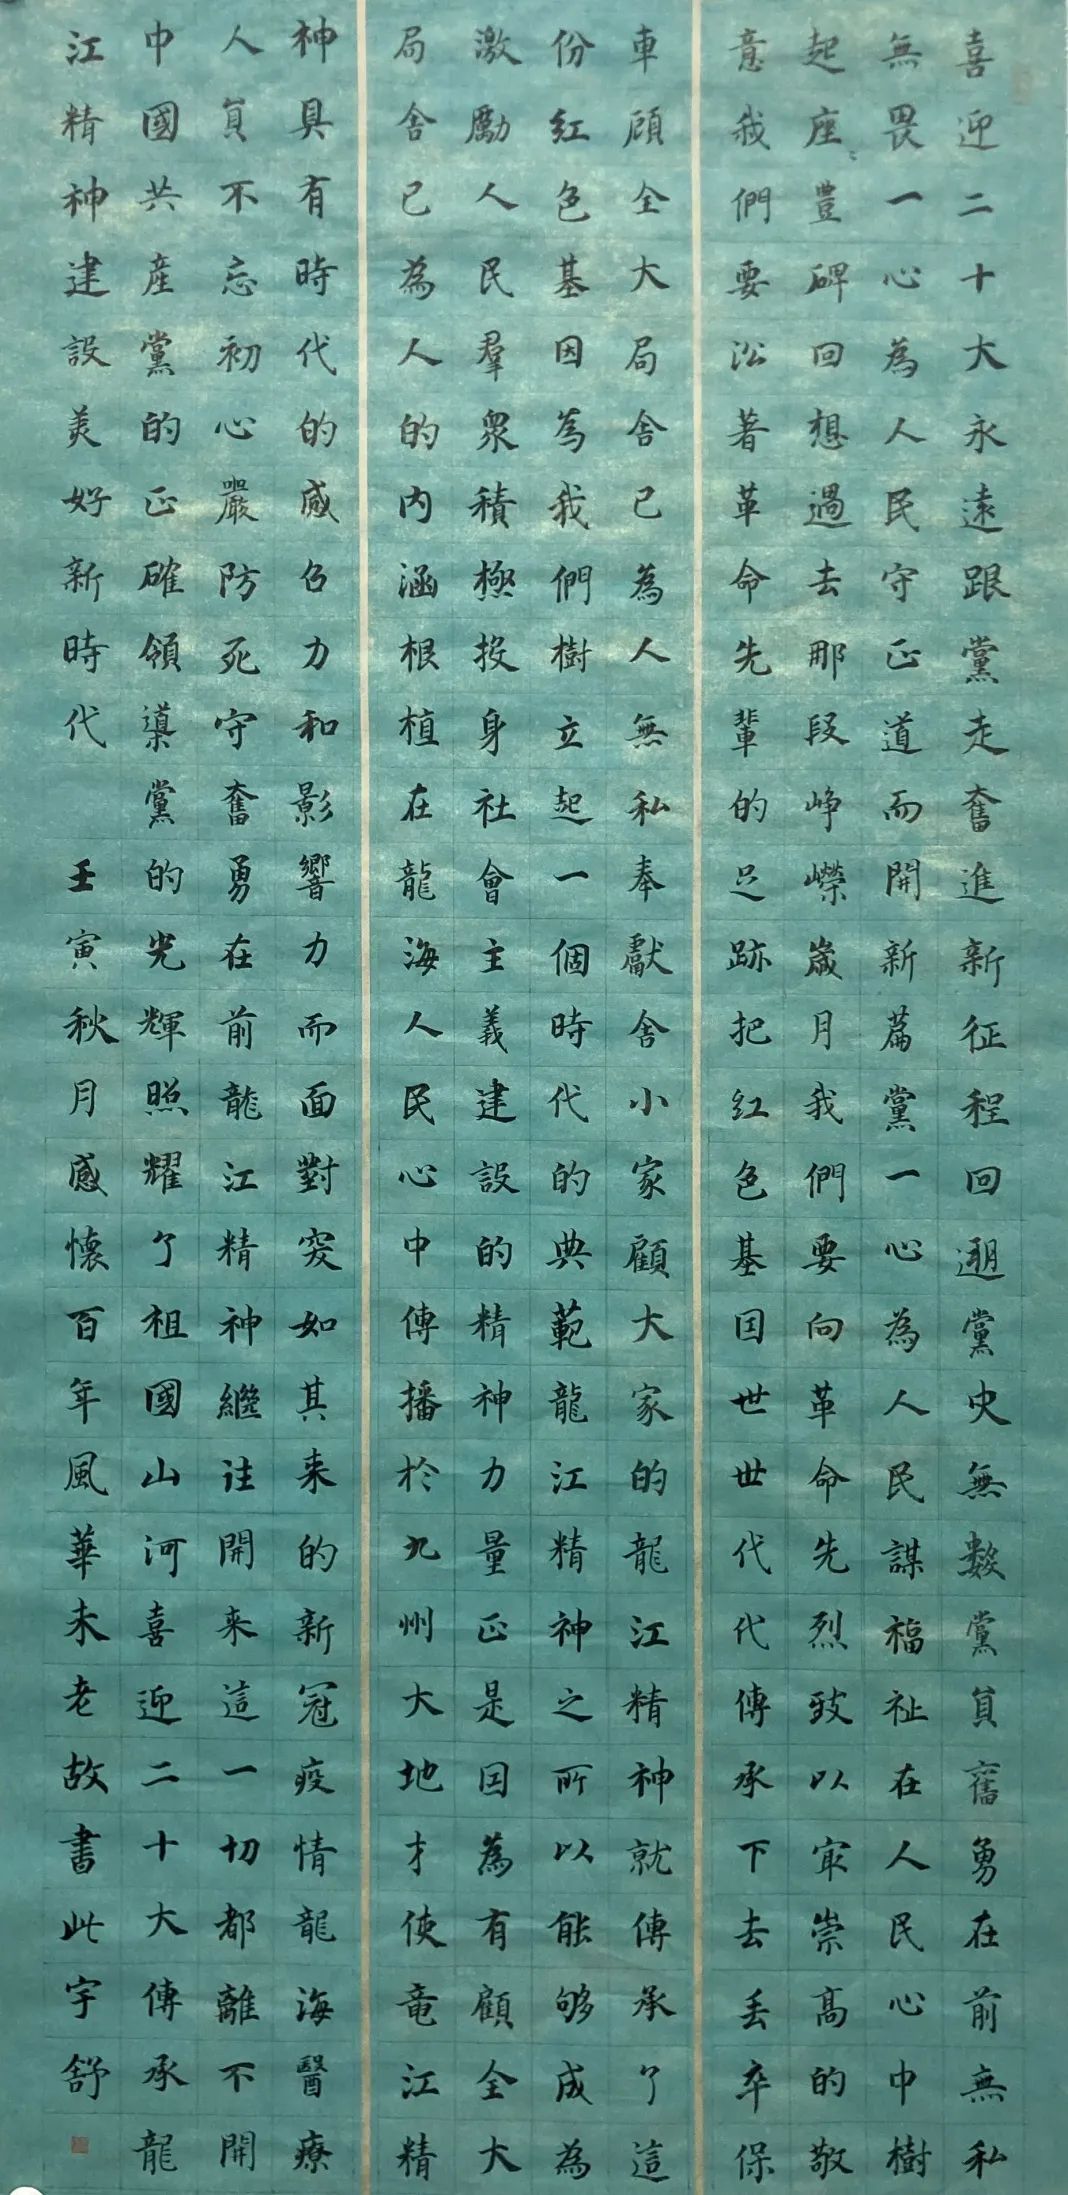 喜迎二十大永遠跟黨走奮進新征程回遡黨史無数黨員奮勇在前無私
無畏一心為人民守正道而開新篇黨一心為人民謀福祉在人民心中樹
起座豐碑回想過去那段崢嶸嵗月我們要向革命先烈致以㝡崇高的敬
意我們要沿著革命先輩的足跡把紅色基因世世代代傳承下去丢卒保
車顧全大局舍已為人無私奉獻舍小家顧大家的龍江精神就傳承了這
份紅色基因為我們樹立起一個時代的典範龍江精神之所以能够成為
激勵人民羣衆積極投身社會主義建設的精神力量正是因為有顧全大
局舍已為人的内涵根植在龍海人民心中傳播於九州大地才使竜江精
神具有時代的感召力和影響力而面對突如其来的新冠疫情龍海醫療
人員不忘初心嚴防死守奮勇在前龍江精神繼往開来這一切都離不開
中國共産黨的正確領導黨的光輝照耀了祖國山河喜迎二十大傳承龍
江精神建設美好新時代 壬寅秋月感懷百年風華未老故書此宇舒